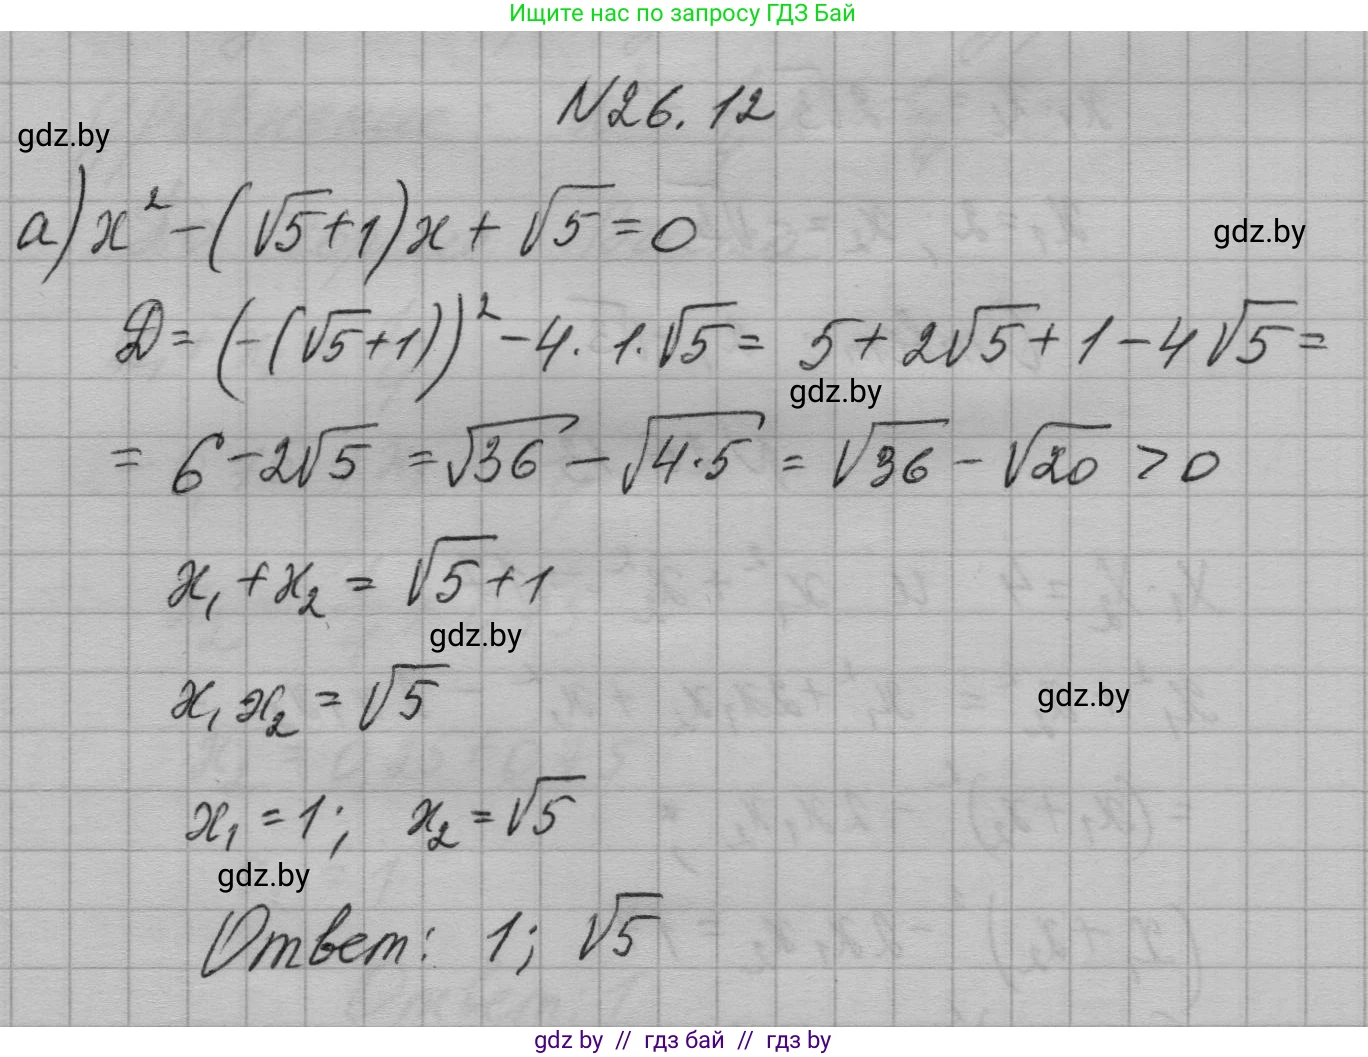 Ищите нас по запросу ГДЗ Бай
N26.12
gdz.by
а) x² - (√5+1)x + √5 = 0
gdz.by
D = (-(√5+1))² - 4·1·√5 = 5+2√5+1-4√5 =
gdz.by
= 6-2√5 = √36 - √4·5 = √36 - √20 > 0
x₁+x₂ = √5+1
gdz.by
x₁x₂ = √5
gdz.by
x₁=1; x₂=√5
gdz.by
Ответ: 1; √5
gdz by // гдз бай // гдз by